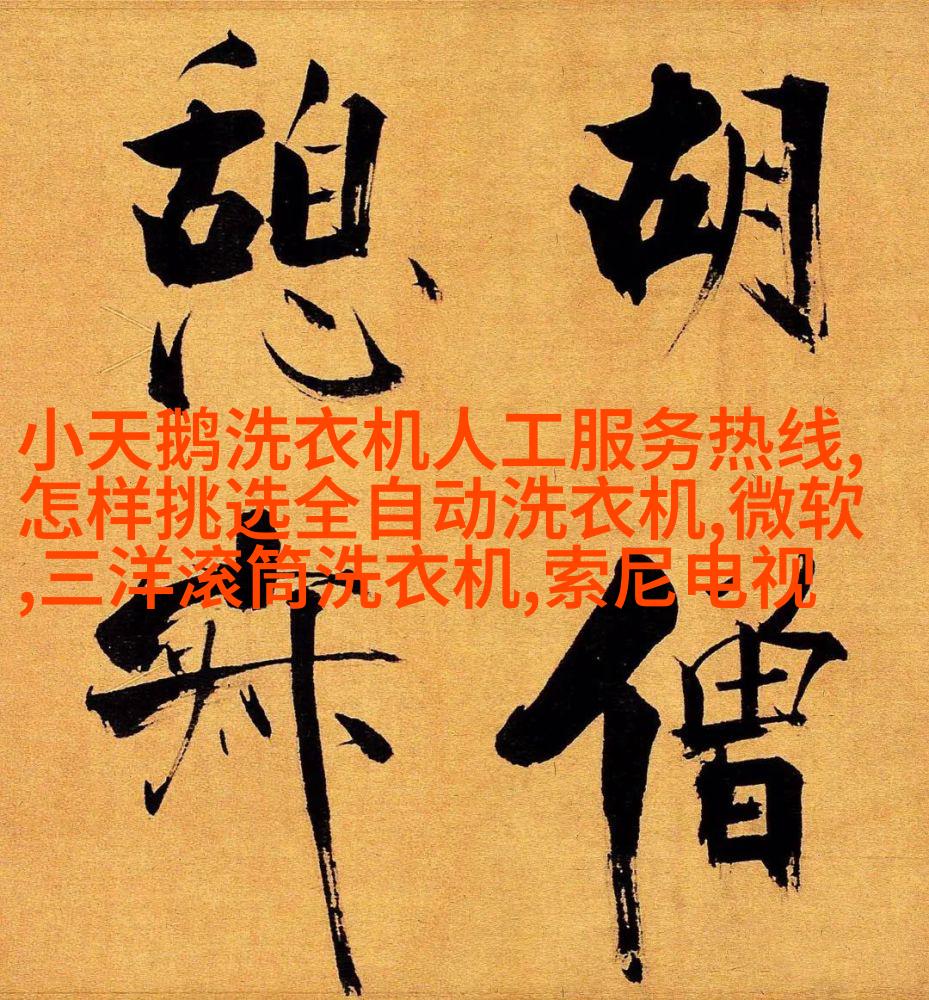 胡僧
憩
小天鹅洗衣机人工服务热线,
怎样挑选全自动洗衣机,微软
,三洋滚筒洗衣机,索尼电视